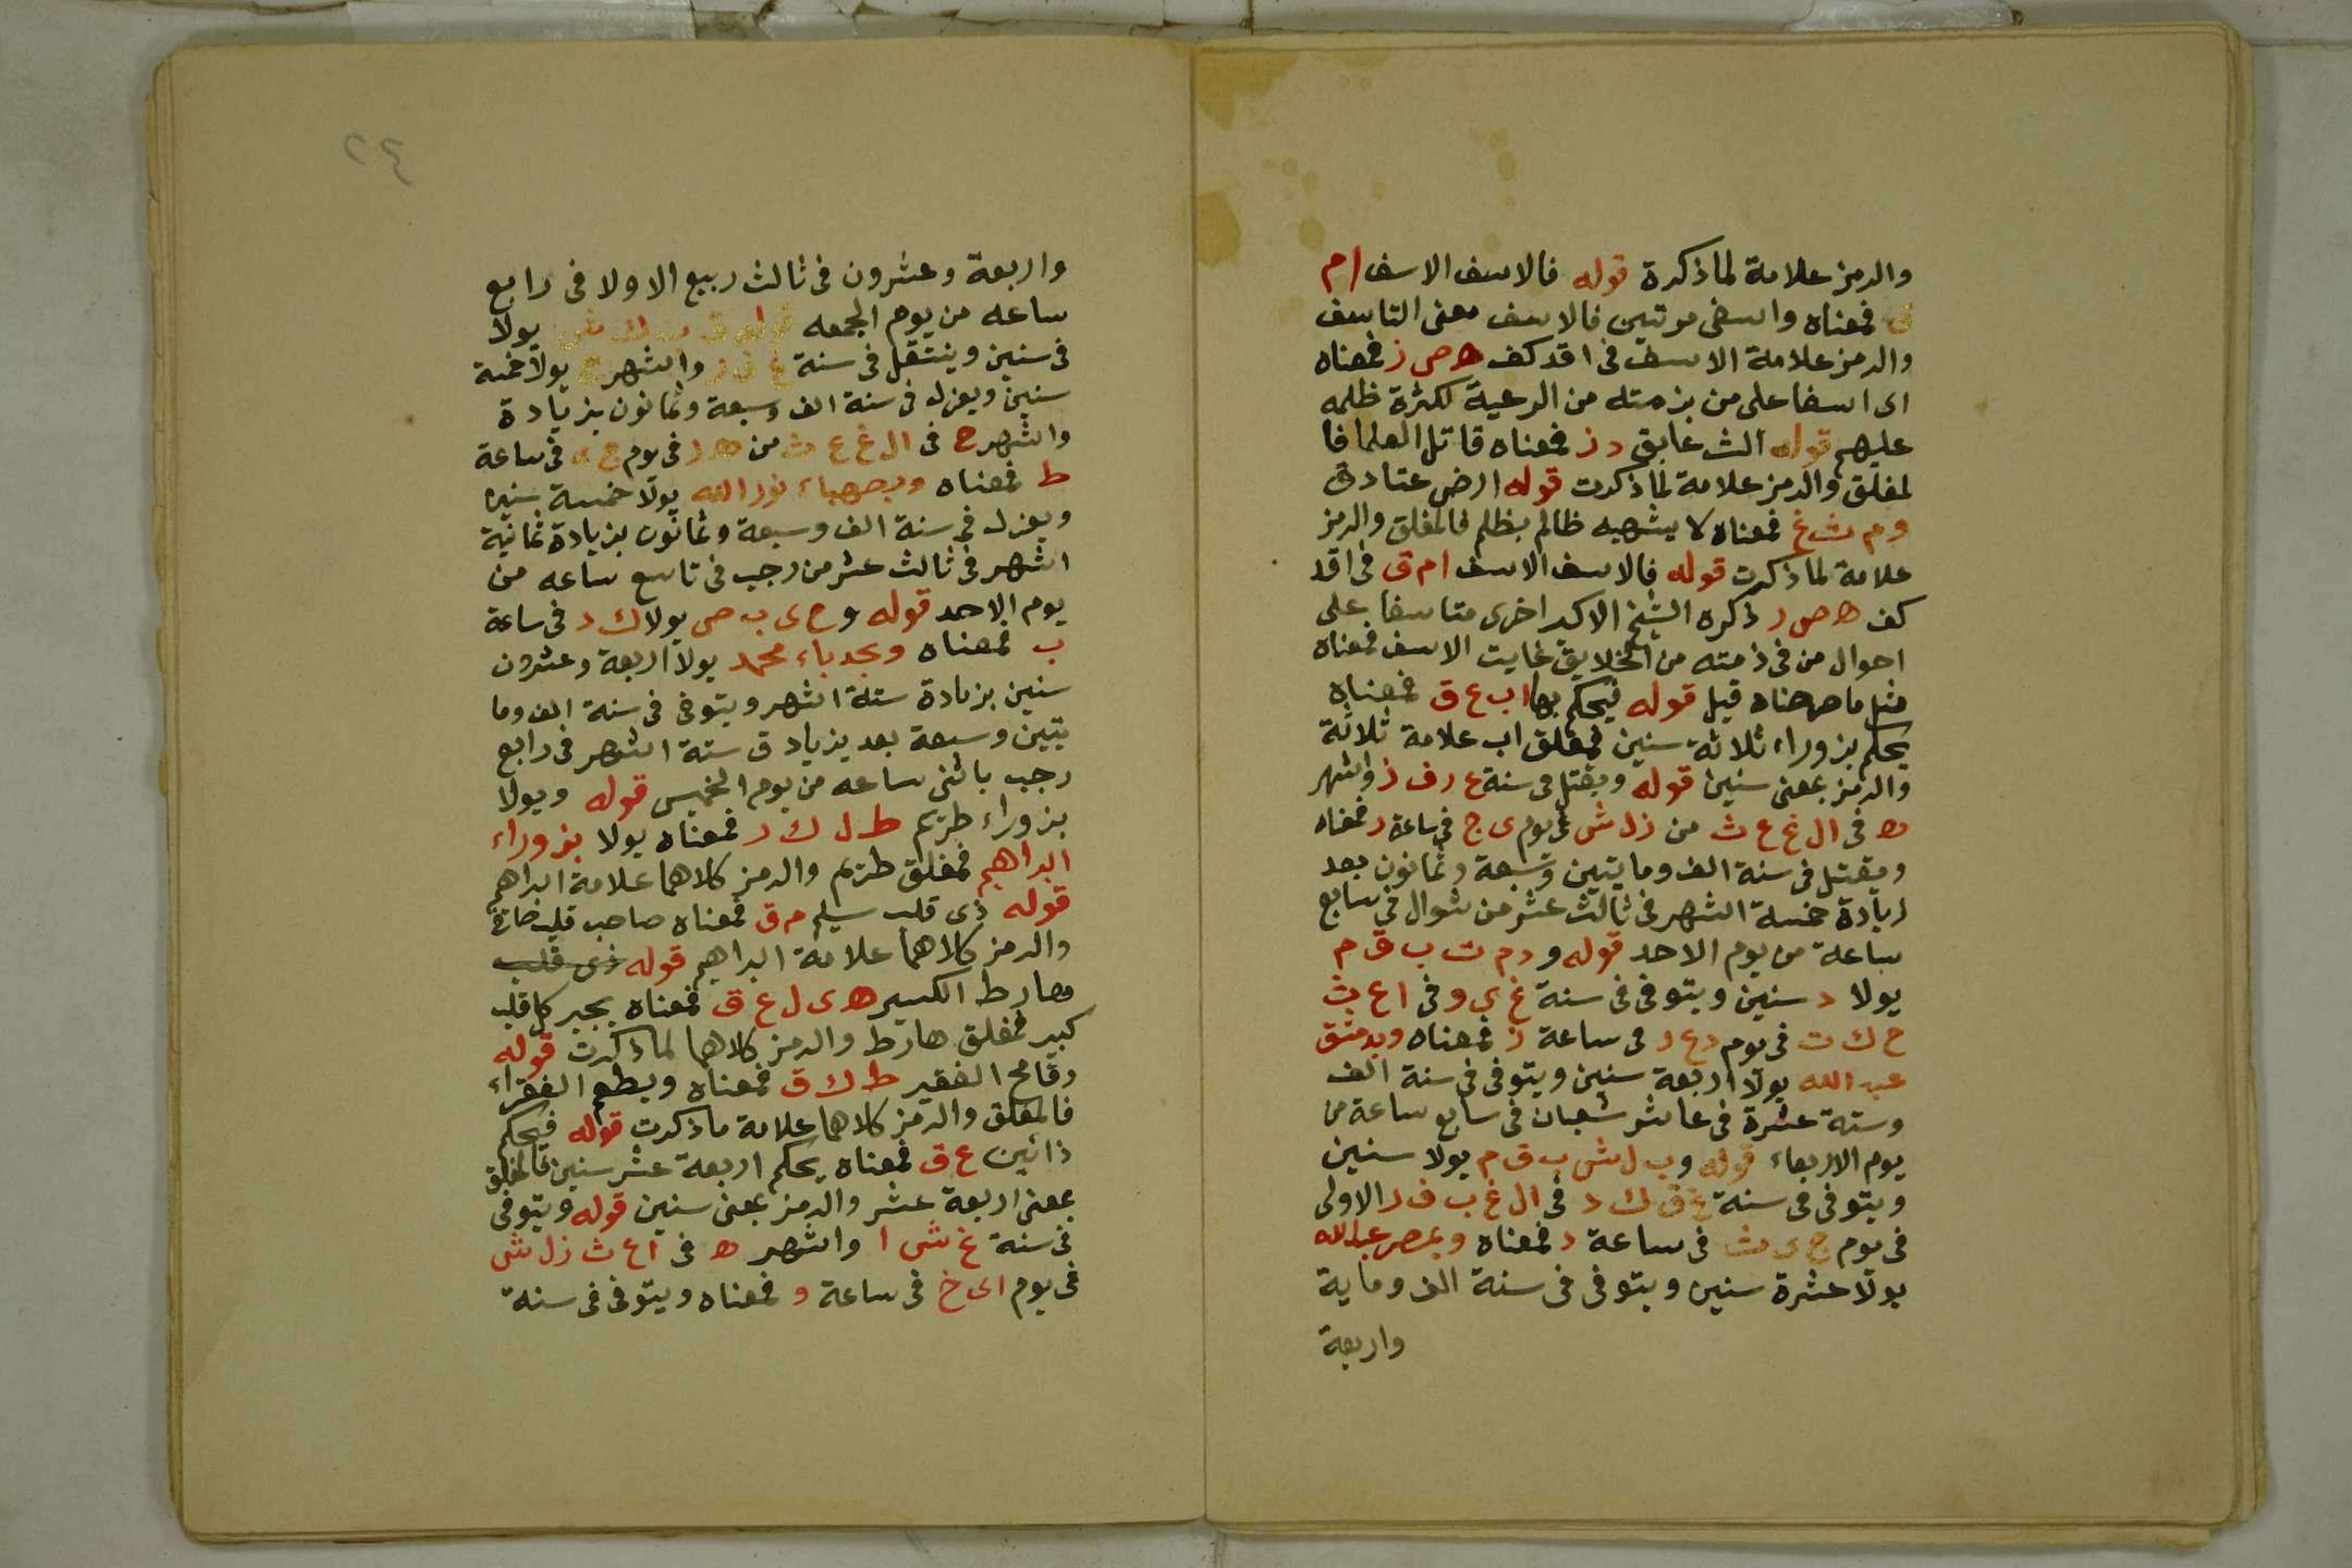 والرمز علامة لما ذكرة قوله فالاسف الاسف ا م
ق فمعناه واسفى مرتين فالاسف معنى التاسف
والرمز علامة الاسف فى اقد كف ه ص ز فمعناه
اى اسفا على من بزمته من الرعية لكثرة ظلمه
عليهم قوله الث عابق د ز فمعناه قاتل العلما فا
لمغلق والرمز علامة لما ذكرت قوله ارض عتادق
و م ث غ فمعناه لا يشبهه ظالم بظلم فالمغلق والرمز
علامة لما ذكرت قوله فالاسف الاسف ا م ق فى اقد
كف ه ص ر ذكره الشيخ الاكبر اخرى متاسفا على
احوال من فى ذمته من الخلايق غايت الاسف فمعناه
مثل ما صرحناه قبل قوله فيحكم بها ا ب ع ق فمعناه
يحكم بزوراء ثلاثة سنين فمغلق اب علامة ثلاثة
والرمز بمعنى سنين قوله ويقتل فى سنة ع ر ف ز واشهر
ه فى ال غ ع ث من ز ل ش فى يوم ى ج فى ساعة ر فمعناه
ويقتل فى سنة الف ومايتين وتسعة وثمانون بعد
زيادة خمسة اشهر فى ثالث عشر من شوال فى سابع
ساعة من يوم الاحد قوله و د م ت ب ق م
يولا د سنين ويتوفى فى سنة غ ى و فى ا ع ث
ح ك ت فى يوم د ع ر فى ساعة ز فمعناه وبدمشق
عبد الله يولا اربعة سنين ويتوفى فى سنة الف
وستة عشرة فى عاشر شعبان فى سابع ساعة من
يوم الاربعاء قوله و ب ل ش ب ق م يولا سنين
ويتوفى فى سنة غ ق ك د فى ال غ ب ف ر الاولى
فى يوم ج ى ث فى ساعة د فمعناه وبمصر عبد الله
يولا عشرة سنين ويتوفى فى سنة الف وماية
واربعة
٢٤
واربعة وعشرون فى ثالث ربيع الاولا فى رابع
ساعه من يوم الجمعه قوله يولا
فى سنين وينتقل فى سنة واشهر ح يولا خمسة
سنين ويعزل فى سنة الف وسبعة وثمانون بزيادة
واشهر ح فى ال غ ع ث من ه ر فى يوم ج فى ساعة
ط فمعناه وبصهباء نور الله يولا خمسة سنين
ويعزل فى سنة الف وسبعة وثمانون بزيادة ثمانية
اشهر فى ثالث عشر من رجب فى تاسع ساعه من
يوم الاحد قوله و ح ى ب ص يولا ك د فى ساعة
ب فمعناه وبحدباء محمد يولا اربعة وعشرون
سنين بزيادة ستة اشهر ويتوفى فى سنة الف وما
يتين وسبعة بعد بزياد ق ستة اشهر فى رابع
رجب باثنى ساعه من يوم الخميس قوله ويولا
بزوراء طزيم ط ل ك ر فمعناه يولا بزوراء
ابراهيم فمغلق طزيم والرمز كلاهما علامة ابراهيم
قوله ذى قلب سليم م ق فمعناه صاحب قلب
والرمز كلاهما علامة ابراهيم قوله ذى قلب
هارط الكسير ه ى ل ع ق فمعناه يجبر كل قلب
كبير فمغلق هارط والرمز كلاهما لما ذكرت قوله
رقامح الفقير ط ك ق فمعناه ويطعم الفقراء
فالمغلق والرمز كلاهما علامة ما ذكرت قوله فيحكم
ذائين ع ق فمعناه يحكم اربعة عشر سنين فالمغلق
بمعنى اربعة عشر والرمز بمعنى سنين قوله ويتوفى
فى سنة غ ش ا واشهر ه فى ا ع ث ز ل ش
فى يوم ا ى خ فى ساعة و فمعناه ويتوفى فى سنة